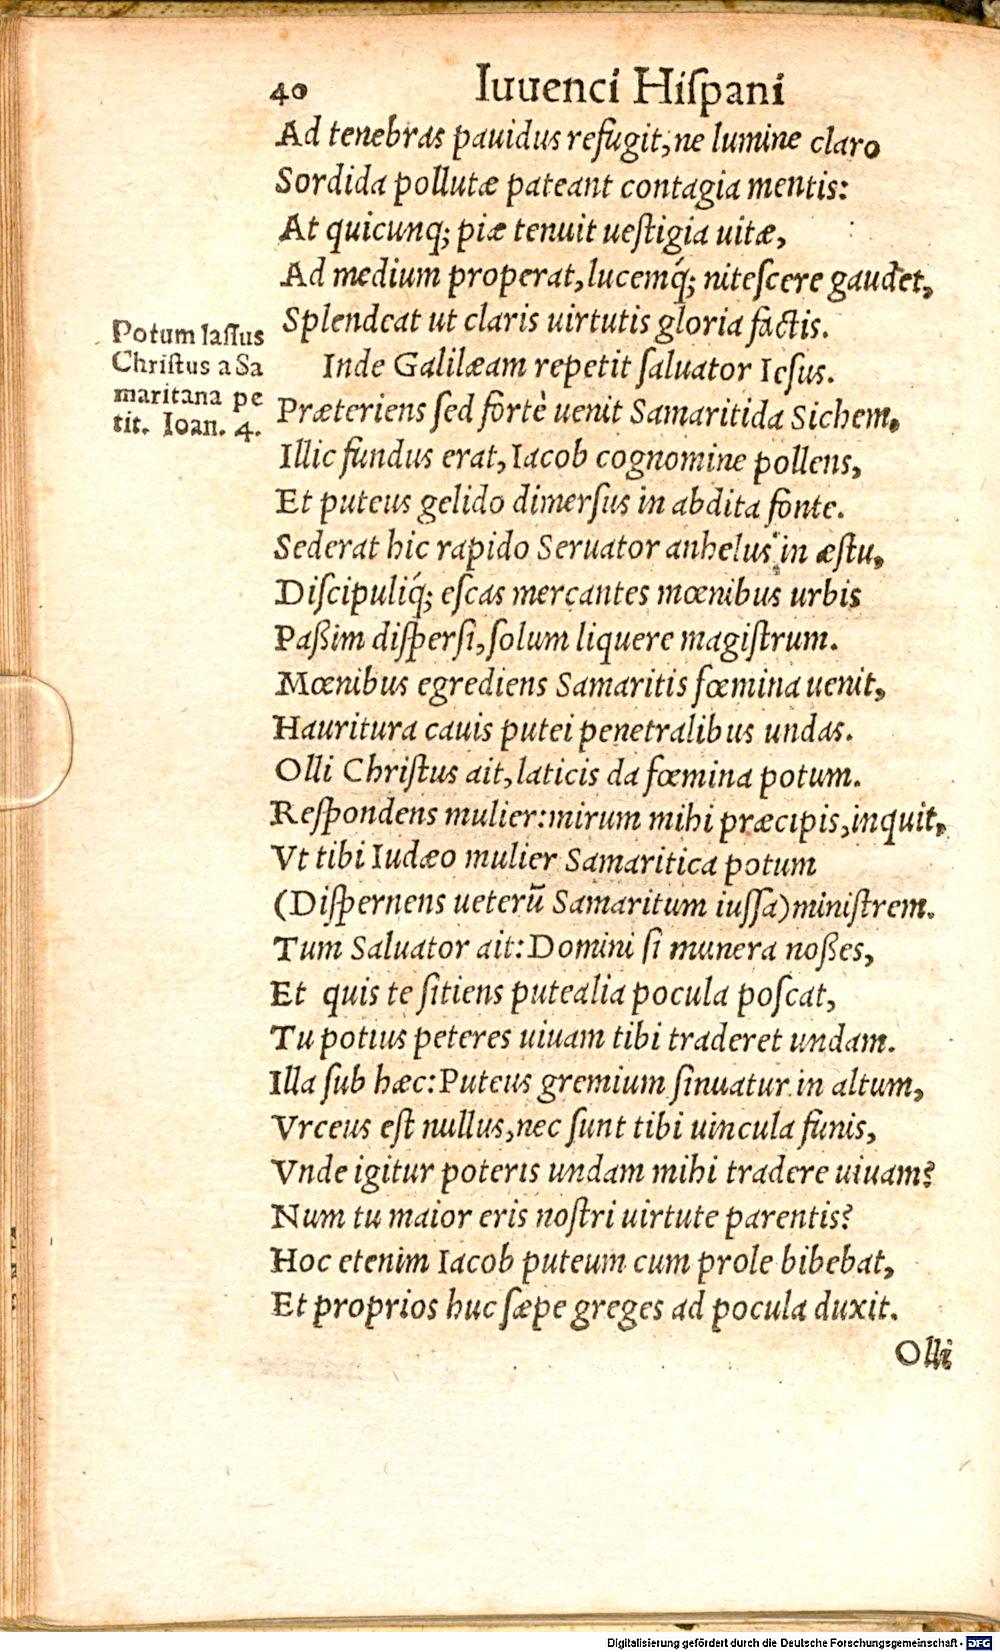 40 Iuuenci Hiſpani
Ad tenebras pauidus refugit, ne lumine claro
Sordida pollutæ pateant contagia mentis:
At quicunq; piæ tenuit ueſtigia uitæ,
Ad medium properat, lucemq́; niteſcere gaudet,
Splendeat ut claris uirtutis gloria factis.
Potum laſſus
Chriſtus a Sa
maritana pe
tit. Ioan. 4.
Inde Galilæam repetit ſaluator Ieſus.
Præteriens ſed fortè uenit Samaritida Sichem,
Illic fundus erat, Iacob cognomine pollens,
Et puteus gelido dimerſus in abdita fonte.
Sederat hic rapido Seruator anhelus in æſtu,
Diſcipuliq́; eſcas mercantes mœnibus urbis
Paßim diſperſi, ſolum liquere magiſtrum.
Mœnibus egrediens Samaritis fœmina uenit,
Hauritura cauis putei penetralibus undas.
Olli Chriſtus ait, laticis da fœmina potum.
Reſpondens mulier: mirum mihi præcipis, inquit,
Vt tibi Iudæo mulier Samaritica potum
(Diſpernens ueterū Samaritum iuſſa) miniſtrem.
Tum Saluator ait: Domini ſi munera noßes,
Et quis te ſitiens putealia pocula poſcat,
Tu potius peteres uiuam tibi traderet undam.
Illa ſub hæc: Puteus gremium ſinuatur in altum,
Vrceus eſt nullus, nec ſunt tibi uincula funis,
Vnde igitur poteris undam mihi tradere uiuam?
Num tu maior eris noſtri uirtute parentis?
Hoc etenim Iacob puteum cum prole bibebat,
Et proprios huc ſæpe greges ad pocula duxit.
Olli
Digitalisierung gefördert durch die Deutsche Forschungsgemeinschaft - DFG